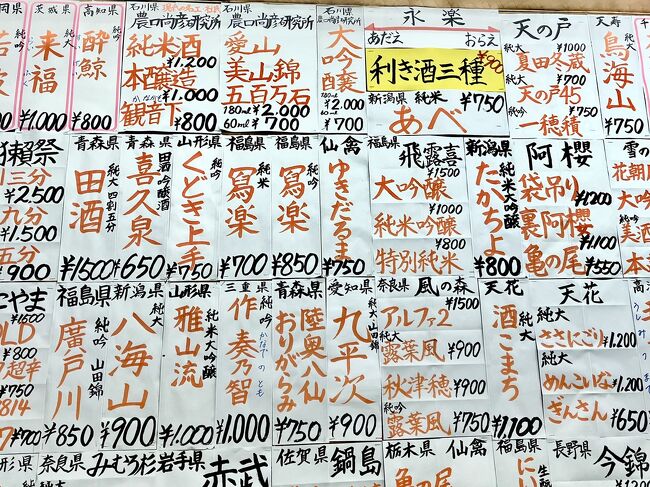 茨城県
純大
来福
¥1.000
高知県
純吟
酔鯨
¥800
石川県
現代の名工
農口尚彦研究所
純米酒
¥1.200
本醸造
¥1.000
観音下
¥800
石川県
農口尚彦研究所
愛山
美山錦
五百万石
180ml ¥2.000
60ml ¥700
石川県
農口尚彦研究所
大吟醸
180ml
¥2.000
60ml
¥700
永楽
あだえ
おらえ
利き酒三種
新潟県
純米
¥750
あべ
天の戸
純大
¥1000
夏田冬蔵
純大
¥700
天の戸45
純吟
¥750
一穂積
天寿
純大
鳥海山
¥750
獺祭
二割三分
¥2.500
三割九分
¥1.500
五分
¥900
青森県
純大 四割五分
田酒
¥1500
青森県
田酒 吟醸酒
喜久泉
¥650
山形県
純吟
くどき上手
¥750
福島県
純米
寫楽
¥700
福島県
純吟
寫楽
¥850
仙禽
ゆきだるま
¥750
飛露喜
¥1500
大吟醸
¥1000
純米吟醸
¥800
特別純米
新潟県
純米大吟醸
たかちよ
¥800
阿櫻
袋吊り
¥1200
裏阿櫻
¥1100
亀の尾
¥550
¥1500
¥800
¥750
814
¥700
福島県
純吟 山田錦
廣戸川
¥850
新潟県
純大
八海山
¥900
山形県
純米大吟醸
雅山流
¥1.000
三重県
純吟
作 奏乃智
かなでのとも
¥1.000
青森県
陸奥八仙
おりがらみ
¥750
愛知県
純大 山田錦
九平次
¥900
奈良県
風の森
¥1500
アルファ2
純大
露葉風
¥900
秋津穂
¥900
純吟
露葉風
¥750
天花
純大
酒こまち
¥1.100
天花
純大
ささにごり
¥1.200
純大
めんこいな
¥1.200
ぎんさん
¥650
形県
奈良県
みむろ杉
岩手県
赤武
佐賀県
鍋島
栃木県
仙禽
亀の尾
福島県
長野県
今錦